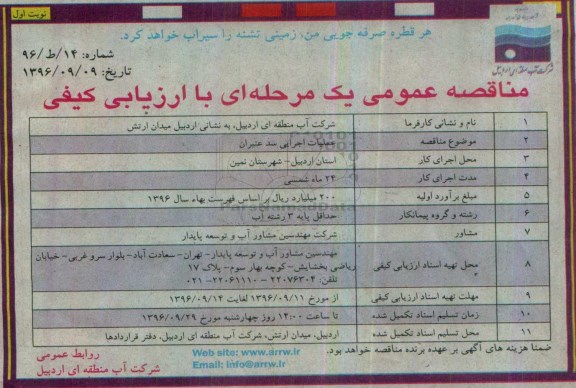 نوبت اول
هر قطره صرفه جویی من، زمینی تشنه را سیراب خواهد کرد.
شرکت آب منطقه ای اردبیل
شماره: ۱۴/ط/۹۶
تاریخ: ۱۳۹۶/۰۹/۰۹
مناقصه عمومی یک مرحله‌ای با ارزیابی کیفی
۱ نام و نشانی کارفرما شرکت آب منطقه ای اردبیل، به نشانی اردبیل میدان ارتش
۲ موضوع مناقصه عملیات اجرایی سد عنبران
۳ محل اجرای کار استان اردبیل- شهرستان نمین
۴ مدت اجرای کار ۲۴ ماه شمسی
۵ مبلغ برآورد اولیه ۲۰۰ میلیارد ریال بر اساس فهرست بهاء سال ۱۳۹۶
۶ رشته و گروه پیمانکار حداقل پایه ۳ رشته آب
۷ مشاور شرکت مهندسین مشاور آب و توسعه پایدار
۸ محل تهیه اسناد ارزیابی کیفی مهندسین مشاور آب و توسعه پایدار- تهران- سعادت آباد- بلوار سرو غربی- خیابان
ریاضی بخشایش- کوچه بهار سوم- پلاک ۱۷
تلفن: ۲۲۰۷۶۳۰۴ - ۲۲۰۶۱۱۱۰-۰۲۱
۹ مهلت تهیه اسناد ارزیابی کیفی از مورخ ۱۳۹۶/۰۹/۱۱ لغایت ۱۳۹۶/۰۹/۱۴
۱۰ زمان تسلیم اسناد تکمیل شده تا ساعت ۱۴:۰۰ روز چهارشنبه مورخ ۱۳۹۶/۰۹/۲۹
۱۱ محل تسلیم اسناد تکمیل شده اردبیل، میدان ارتش، شرکت آب منطقه ای اردبیل، دفتر قراردادها
ضمنا هزینه های آگهی بر عهده برنده مناقصه خواهد بود.
Web site: www.arrw.ir
Email: info@arrw.ir
روابط عمومی
شرکت آب منطقه ای اردبیل